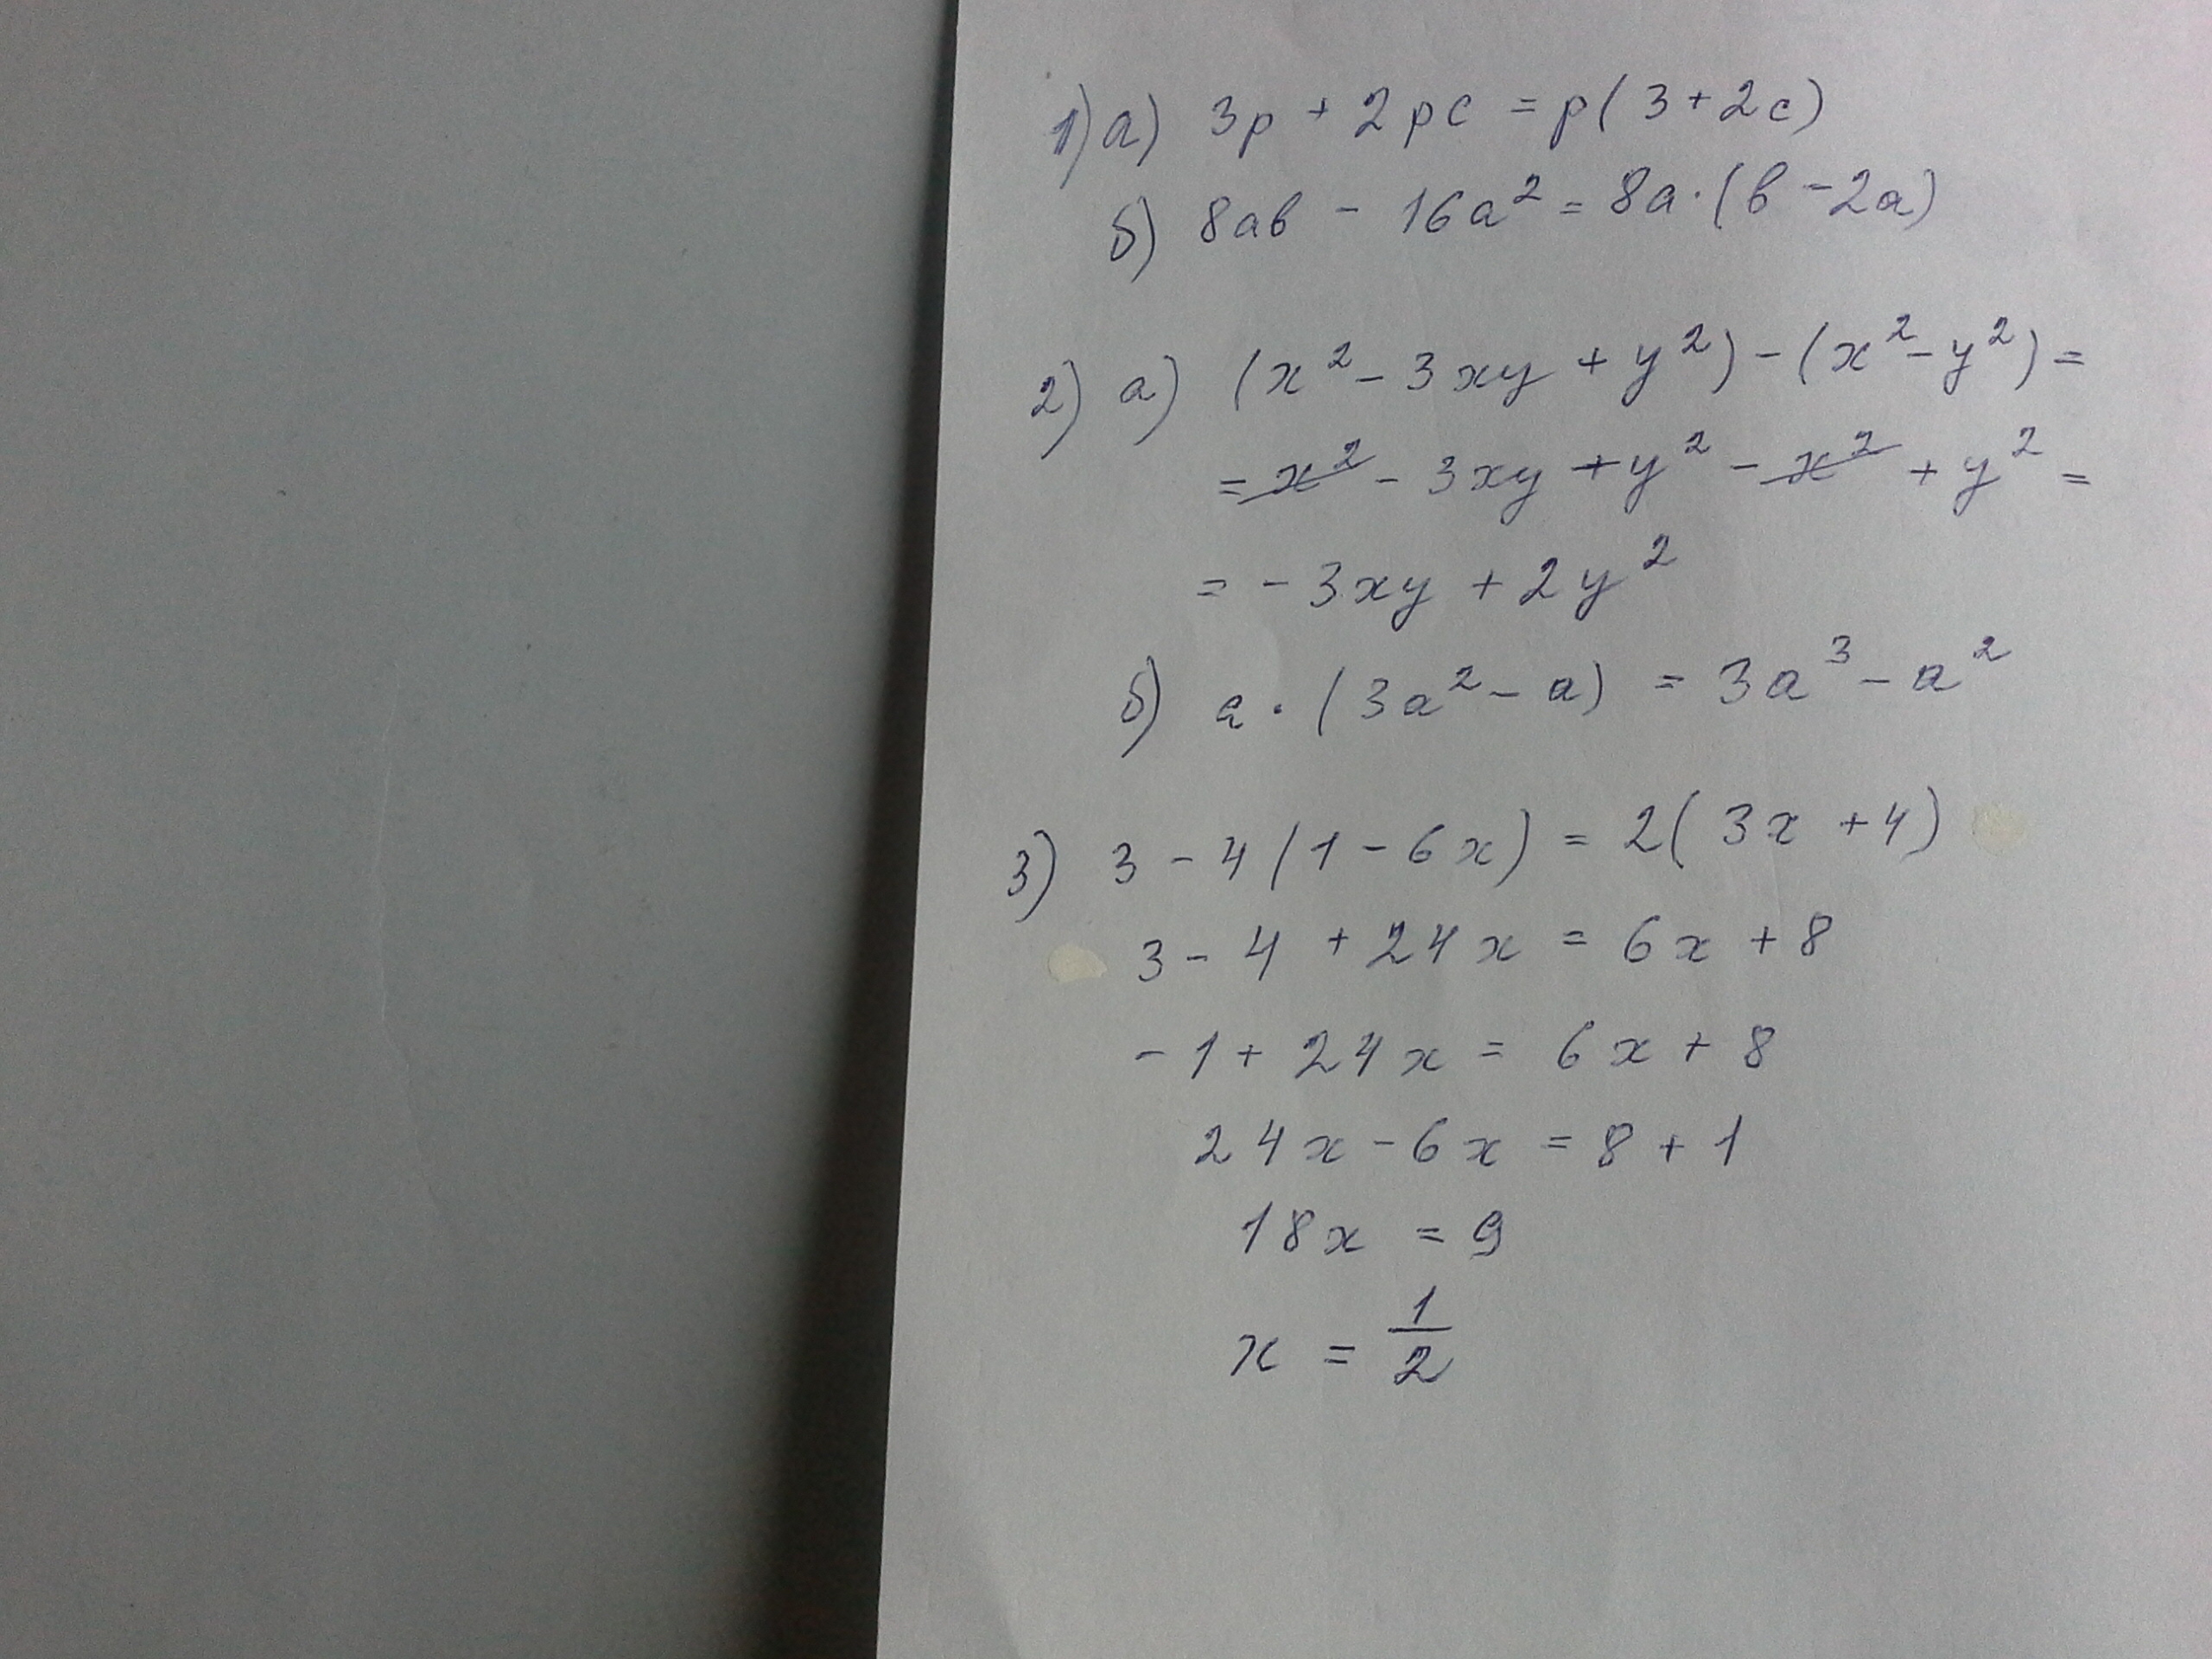 1) а) 3p + 2pc = p(3+2c)
б) 8ab - 16a² = 8a·(b-2a)
2) а) (x² - 3xy + y²) - (x² - y²) =
= x² - 3xy + y² - x² + y² =
= -3xy + 2y²
б) a·(3a² - a) = 3a³ - a²
3) 3 - 4(1 - 6x) = 2(3x + 4)
3 - 4 + 24x = 6x + 8
-1 + 24x = 6x + 8
24x - 6x = 8 + 1
18x = 9
x = 1/2